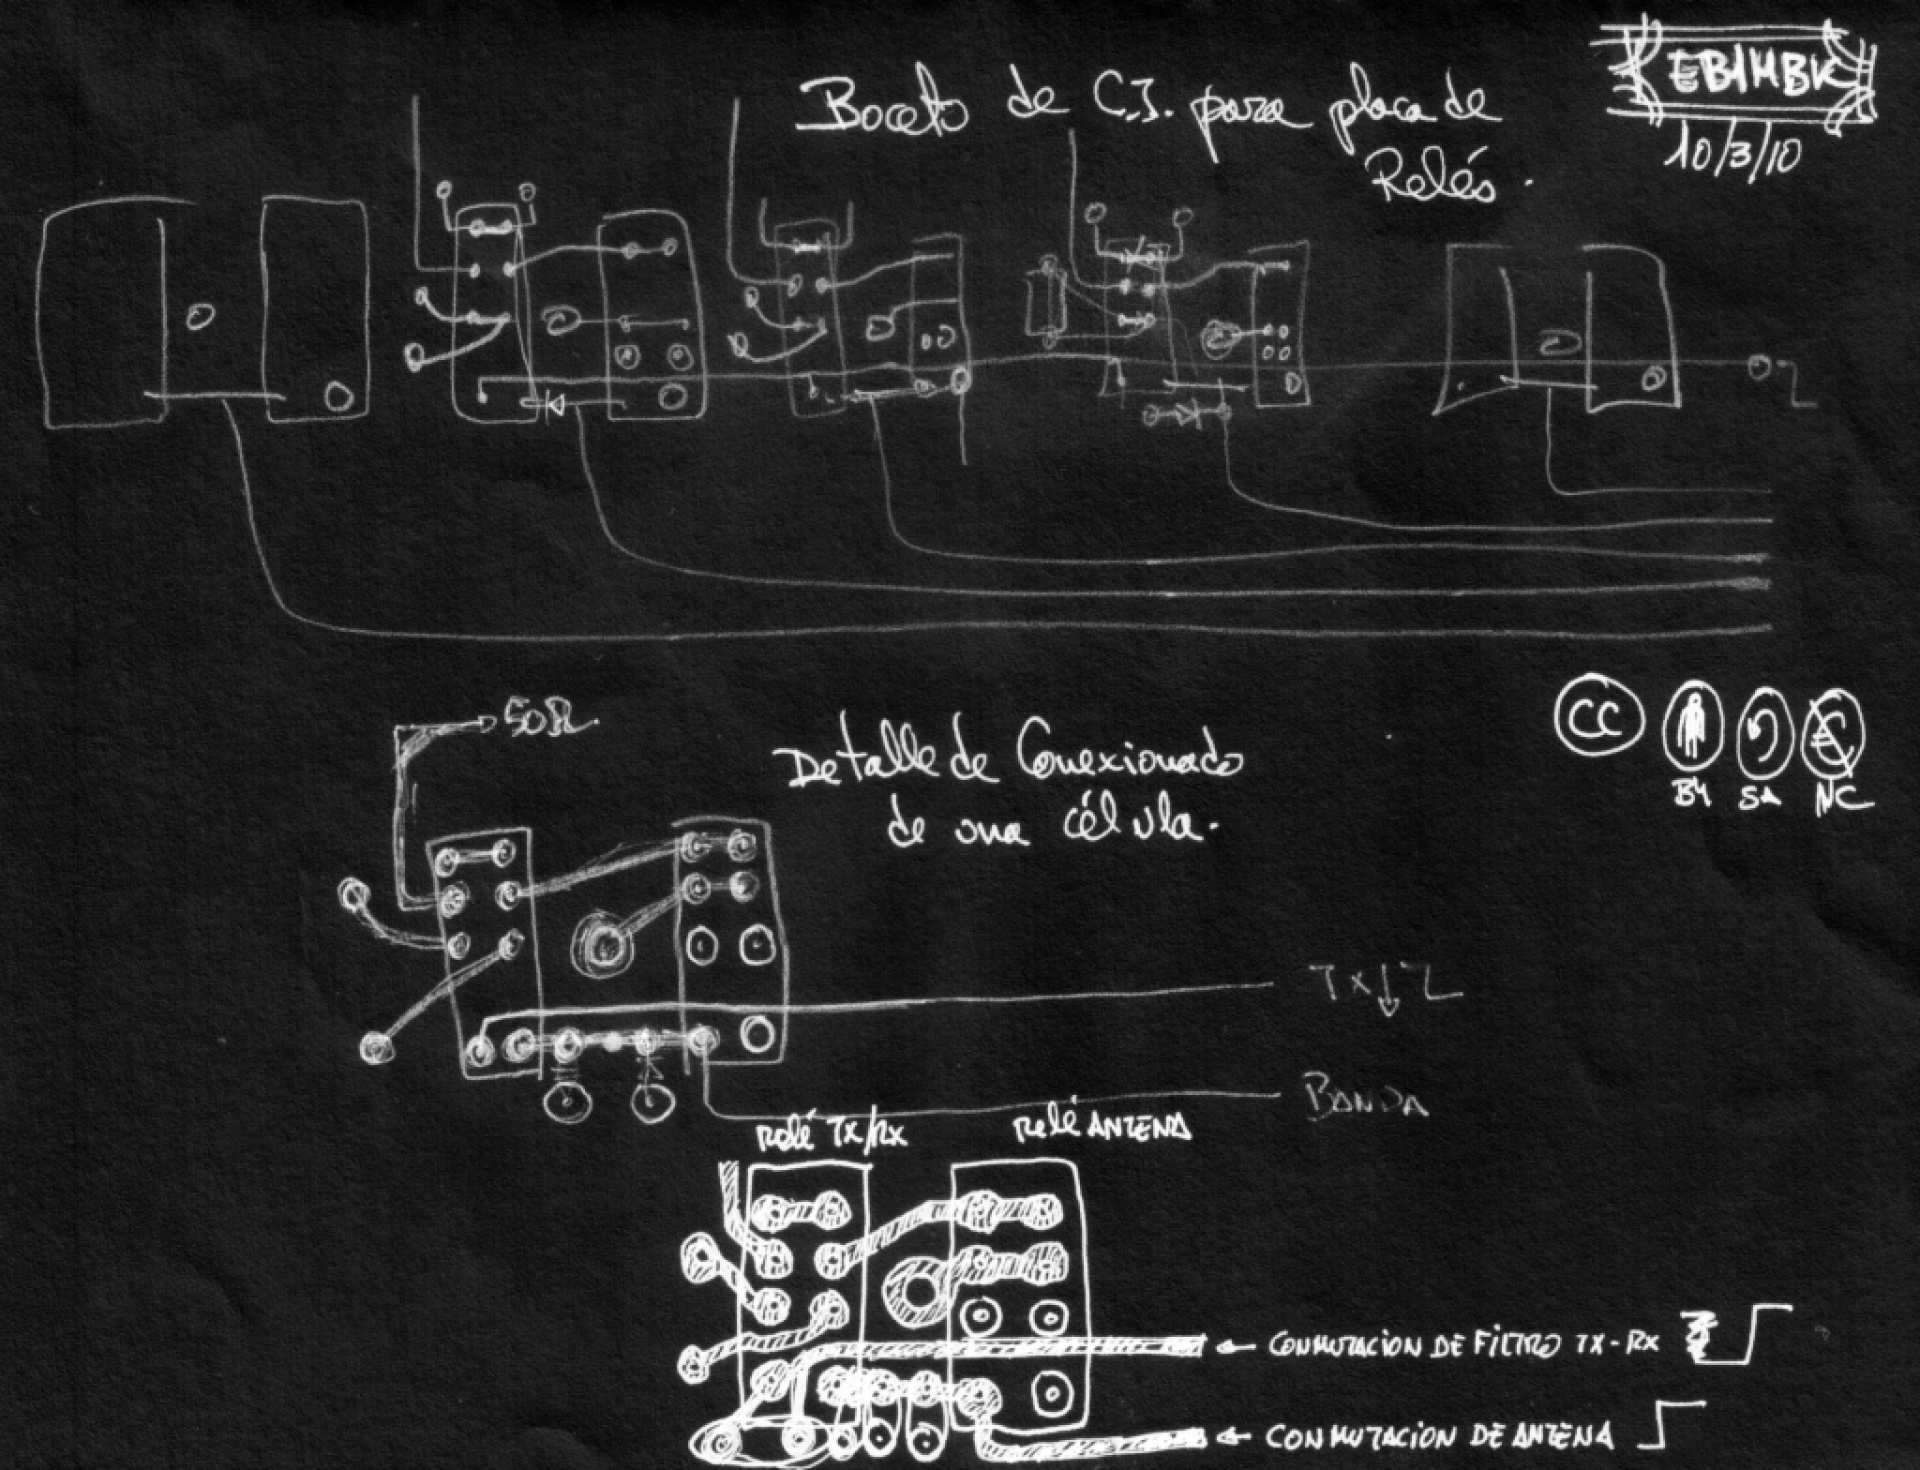 EB1HBK
10/3/10
Boceto de C.I. para placa de
Relés.
CC
BY SA NC
50Ω
Detalle de Conexionado
de una célula.
Tx↓
BANDA
relé Tx/Rx
relé ANTENA
← CONMUTACION DE FILTRO TX-RX
← CONMUTACION DE ANTENA